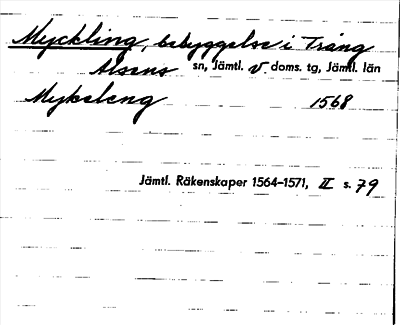 Myckling, bebyggelse i Trång
Alsens sn, Jämtl. v doms. tg, Jämtl. län
Mykeleng 1568
Jämtl. Räkenskaper 1564–1571, II s. 79